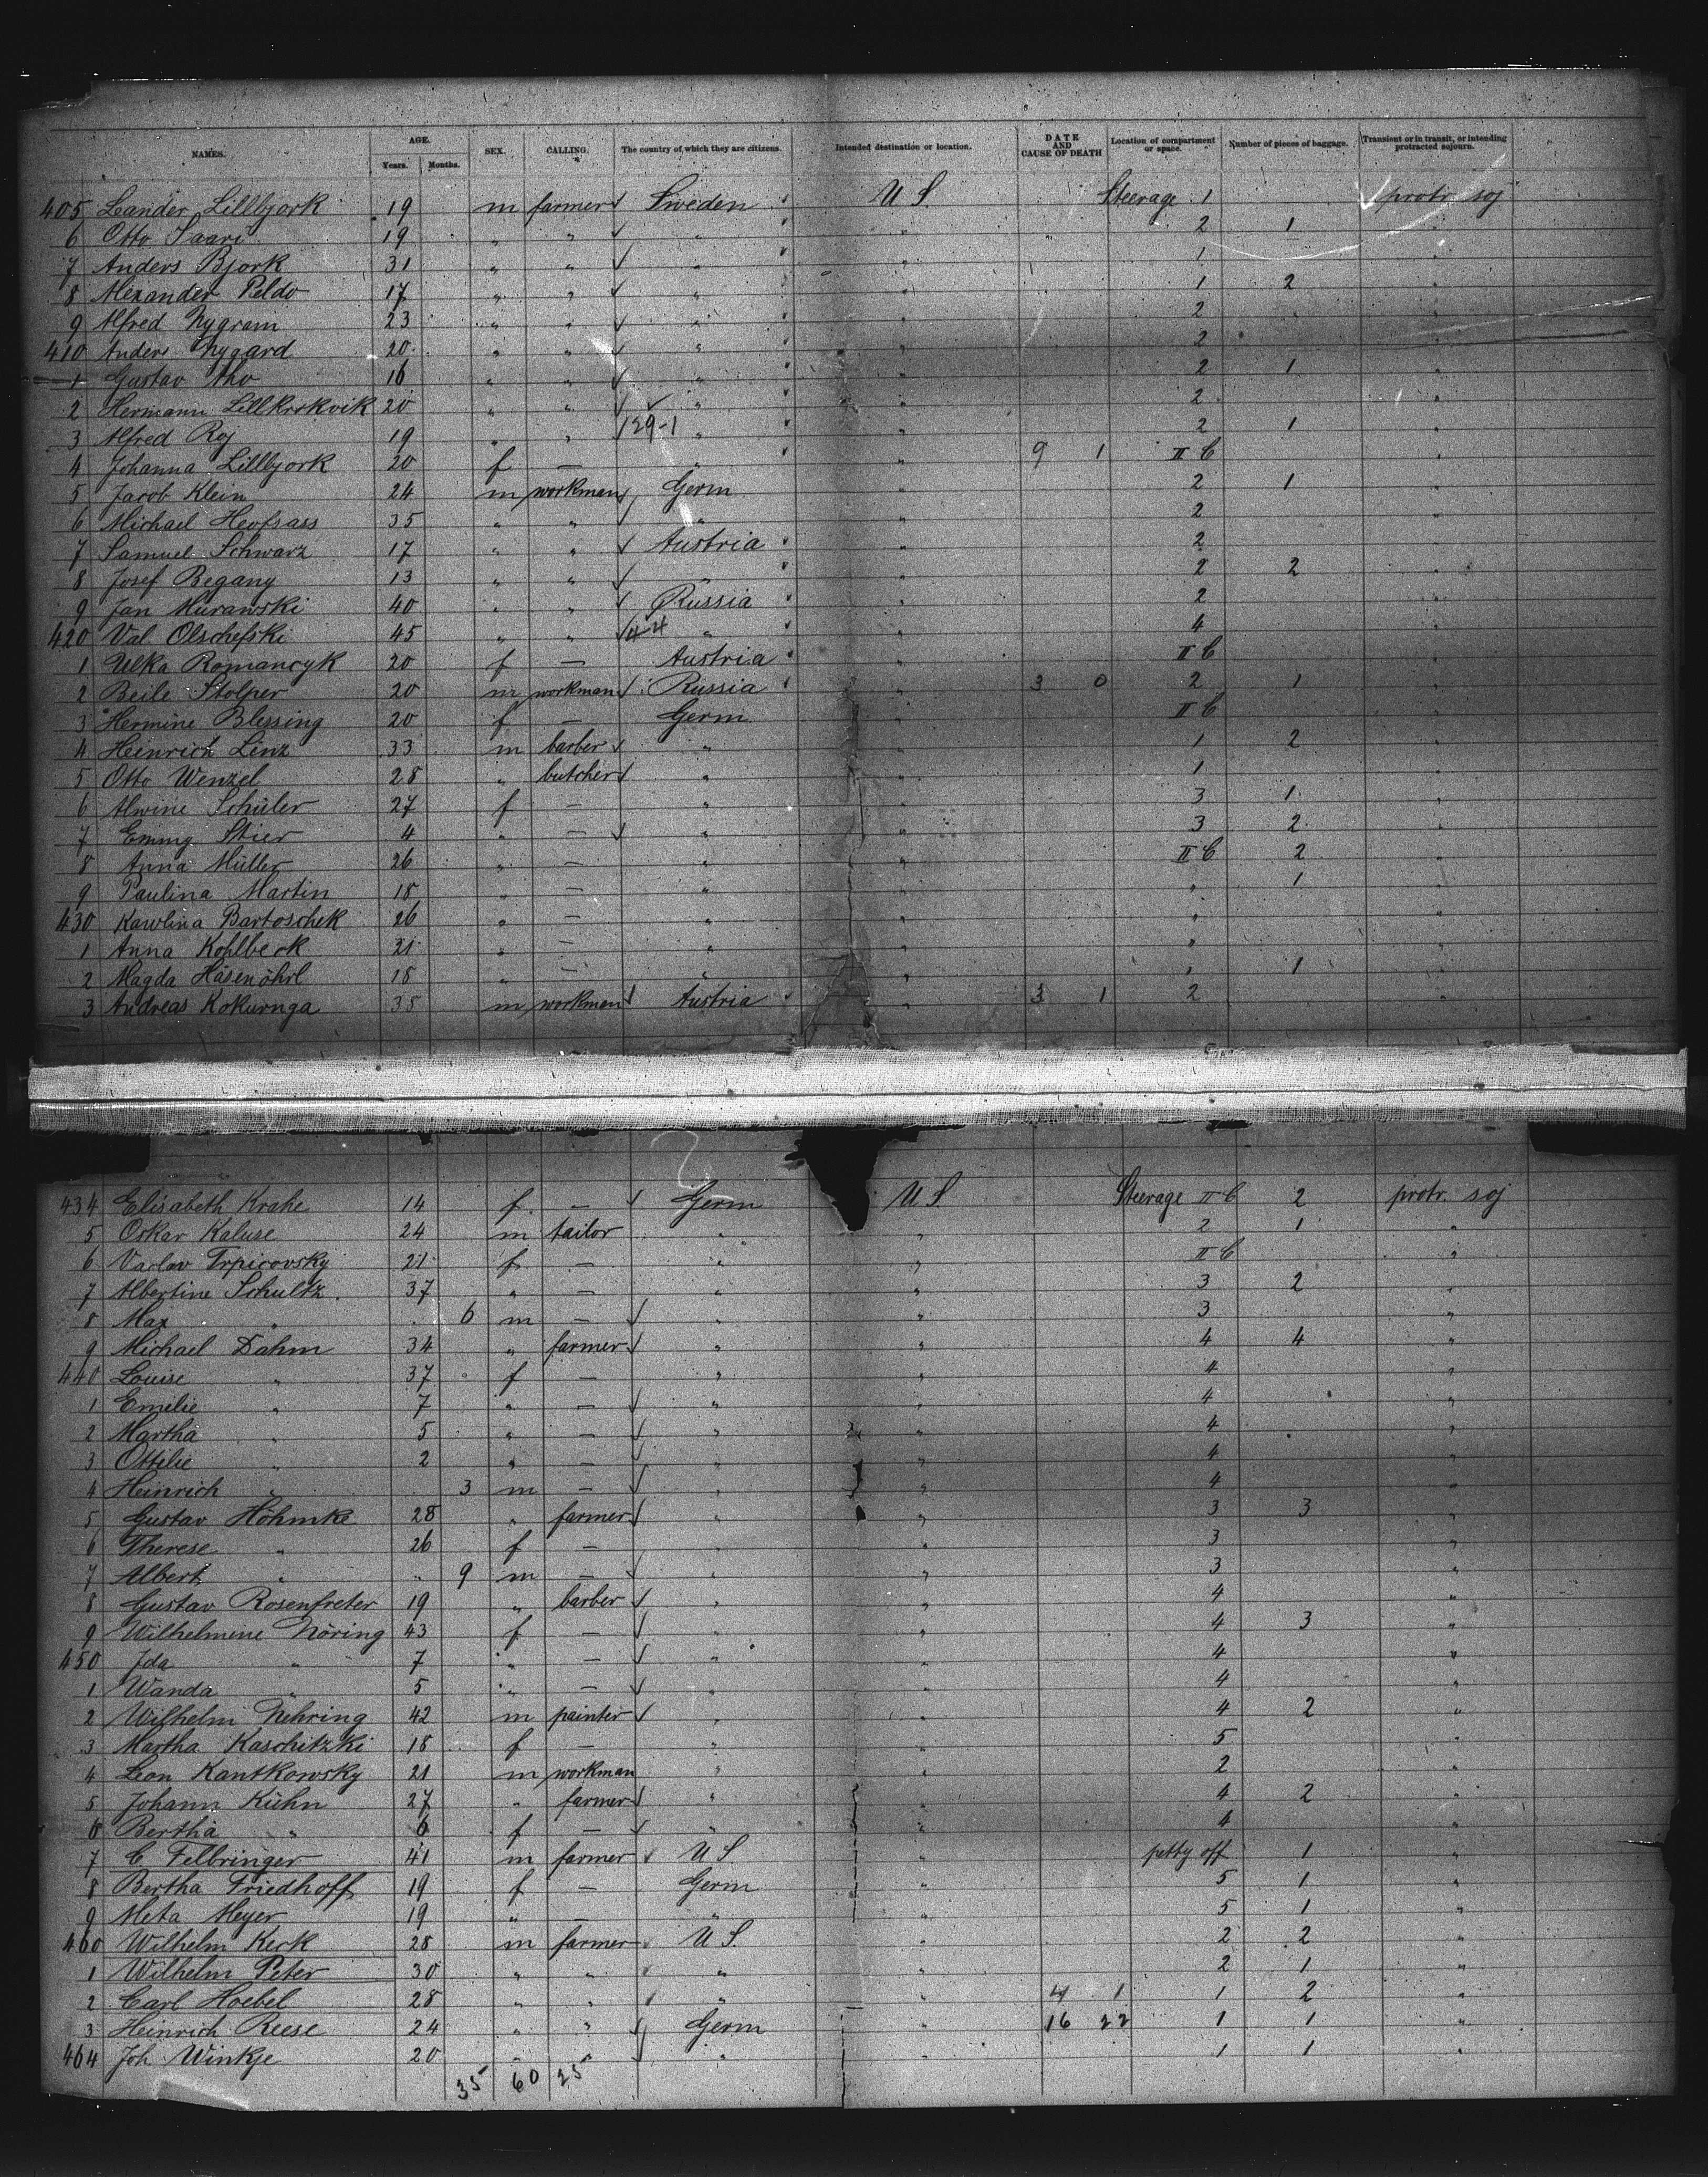 NAMES. AGE. Years. Months. SEX. CALLING. The country of which they are citizens. Intended destination or location. DATE AND CAUSE OF DEATH Location of compartment or space. Number of pieces of baggage. Transient or in transit, or intending protracted sojourn.
405 Leander Lillbjork 19 m farmer Sweden U S Steerage 1 protr. soj
6 Otto Saari 19 " " " " 2 1 "
7 Anders Bjork 31 " " " " 1 "
8 Alexander Peldo 17 " " " " 1 2 "
9 Alfred Nygram 23 " " " " 2 "
410 Anders Nygard 20 " " " " 2 "
1 Gustav Aho 16 " " " " 2 1 "
2 Hermann Lillkrokvik 20 " " " " 2 "
3 Alfred Roj 19 " " 129-1 " " 2 1 "
4 Johanna Lillbjork 20 f — " " 9 1 II C "
5 Jacob Klein 24 m workman Germ " 2 1 "
6 Michael Heofsass 35 " " " " 2 "
7 Samuel Schwarz 17 " " Austria " 2 "
8 Josef Begany 13 " " " " 2 2 "
9 Jan Murawski 40 " " Russia " 2 "
420 Val Olschefski 45 " " 44 " " 4 "
1 Ulka Romancyk 20 f — Austria " II C "
2 Beile Stolper 20 m workman Russia " 3 0 2 1 "
3 Hermine Blessing 20 f — Germ " II C "
4 Heinrich Linz 33 m barber " " 1 2 "
5 Otto Wenzel 28 " butcher " " 1 "
6 Alwine Schuler 27 f — " " 3 1 "
7 Emmy Stier 4 " — " " 3 2 "
8 Anna Müller 26 " — " " II C 2 "
9 Paulina Martin 18 " — " " " 1 "
430 Kawlina Bartoschek 26 " — " " " "
1 Anna Kohlbeck 21 " — " " " "
2 Magda Hasenöhrl 18 " — " " " 1 "
3 Andreas Kokurnga 38 m workman Austria " 3 1 2 "
434 Elisabeth Krahe 14 f — Germ U S. Steerage II C 2 protr. soj
5 Oskar Kaluse 24 m tailor " " 2 1 "
6 Vaclav Trpicovsky 21 f — " " II C "
7 Albertine Schultz 37 " — " " 3 2 "
8 Max " 6 m — " " 3 "
9 Michael Dahm 34 " farmer " " 4 4 "
440 Louise " 37 f — " " 4 "
1 Emilie " 7 " — " " 4 "
2 Martha " 5 " — " " 4 "
3 Ottilie " 2 " — " " 4 "
4 Heinrich " 3 m — " " 4 "
5 Gustav Höhmke 28 " farmer " " 3 3 "
6 Therese " 26 f — " " 3 "
7 Albert " 9 m — " " 3 "
8 Gustav Rosenfreter 19 " barber " " 4 "
9 Wilhelmine Nöring 43 f — " " 4 3 "
450 Ida " 7 " — " " 4 "
1 Wanda " 5 " — " " 4 "
2 Wilhelm Nehring 42 m painter " " 4 2 "
3 Martha Kaschitzki 18 f — " " 5 "
4 Leon Kantkowsky 21 m workman " " 2 "
5 Johann Kuhn 27 " farmer " " 4 2 "
6 Bertha " 6 f — " " 4 "
7 C Felbringer 41 m farmer U S. " petty off 1 "
8 Bertha Friedhoff 19 f — Germ " 5 1 "
9 Meta Meyer 19 " — " " 5 1 "
460 Wilhelm Kerk 28 m farmer U S. " 2 2 "
1 Wilhelm Peter 30 " " " " 2 1 "
2 Carl Hoebel 28 " " " " 4 1 1 2 "
3 Heinrich Reese 24 " " Germ " 16 22 1 1 "
464 Joh. Winkje 20 " " " " 1 1 "
35 60 25